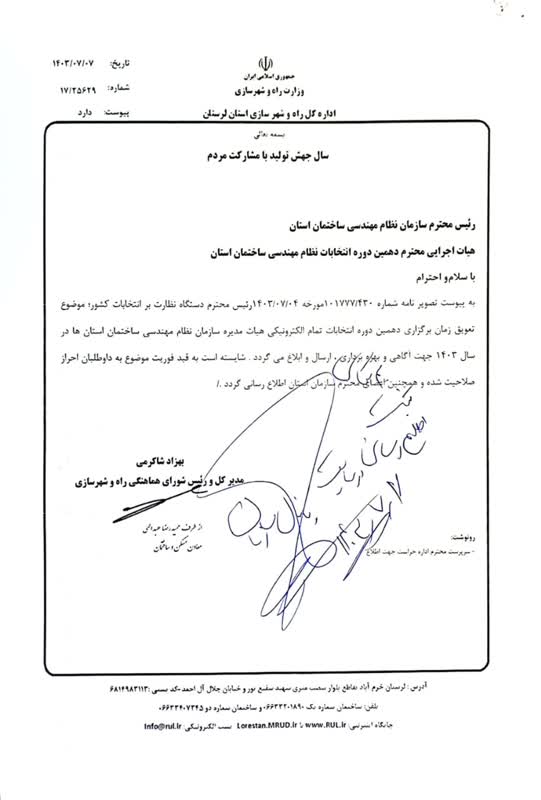 تاریخ: ۱۴۰۳/۰۷/۰۷
شماره: ۱۷/۲۵۶۲۹
پیوست: دارد
جمهوری اسلامی ایران
وزارت راه و شهرسازی
اداره کل راه و شهر سازی استان لرستان
بسمه تعالی
سال جهش تولید با مشارکت مردم
رئیس محترم سازمان نظام مهندسی ساختمان استان
هیات اجرایی محترم دهمین دوره انتخابات نظام مهندسی ساختمان استان
با سلام و احترام
به پیوست تصویر نامه شماره ۱۰۱۷۷۷/۴۳۰مورخه ۱۴۰۳/۰۷/۰۴رئیس محترم دستگاه نظارت بر انتخابات کشور؛ موضوع
تعویق زمان برگزاری دهمین دوره انتخابات تمام الکترونیکی هیات مدیره سازمان نظام مهندسی ساختمان استان ها در
سال ۱۴۰۳ جهت آگاهی و بهره برداری ، ارسال و ابلاغ می گردد . شایسته است به قید فوریت موضوع به داوطلبان احراز
صلاحیت شده و همچنین اعضای محترم سازمان استان اطلاع رسانی گردد ./
جهت
اطلاع رسانی در سایت
۱۴۰۳/۷/۷
بهزاد شاکرمی
مدیر کل و رئیس شورای هماهنگی راه و شهرسازی
از طرف حمیدرضا عبدالهی
معاون مسکن و ساختمان
رونوشت:
- سرپرست محترم اداره حراست جهت اطلاع
آدرس : لرستان خرم آباد تقاطع بلوار سمت متری شهید شفیع پور و خیابان جلال آل احمد -کد پستی :۶۸۱۴۹۸۳۱۱۳
تلفن: ساختمان شماره یک ۰۶۶۳۳۲۰۱۸۹۰ و ساختمان شماره دو ۰۶۶۳۳۴۰۷۳۴۵
جایگاه اینترنتی: www.RUL.ir یا Lorestan.MRUD.ir پست الکترونیکی: Info@rul.ir